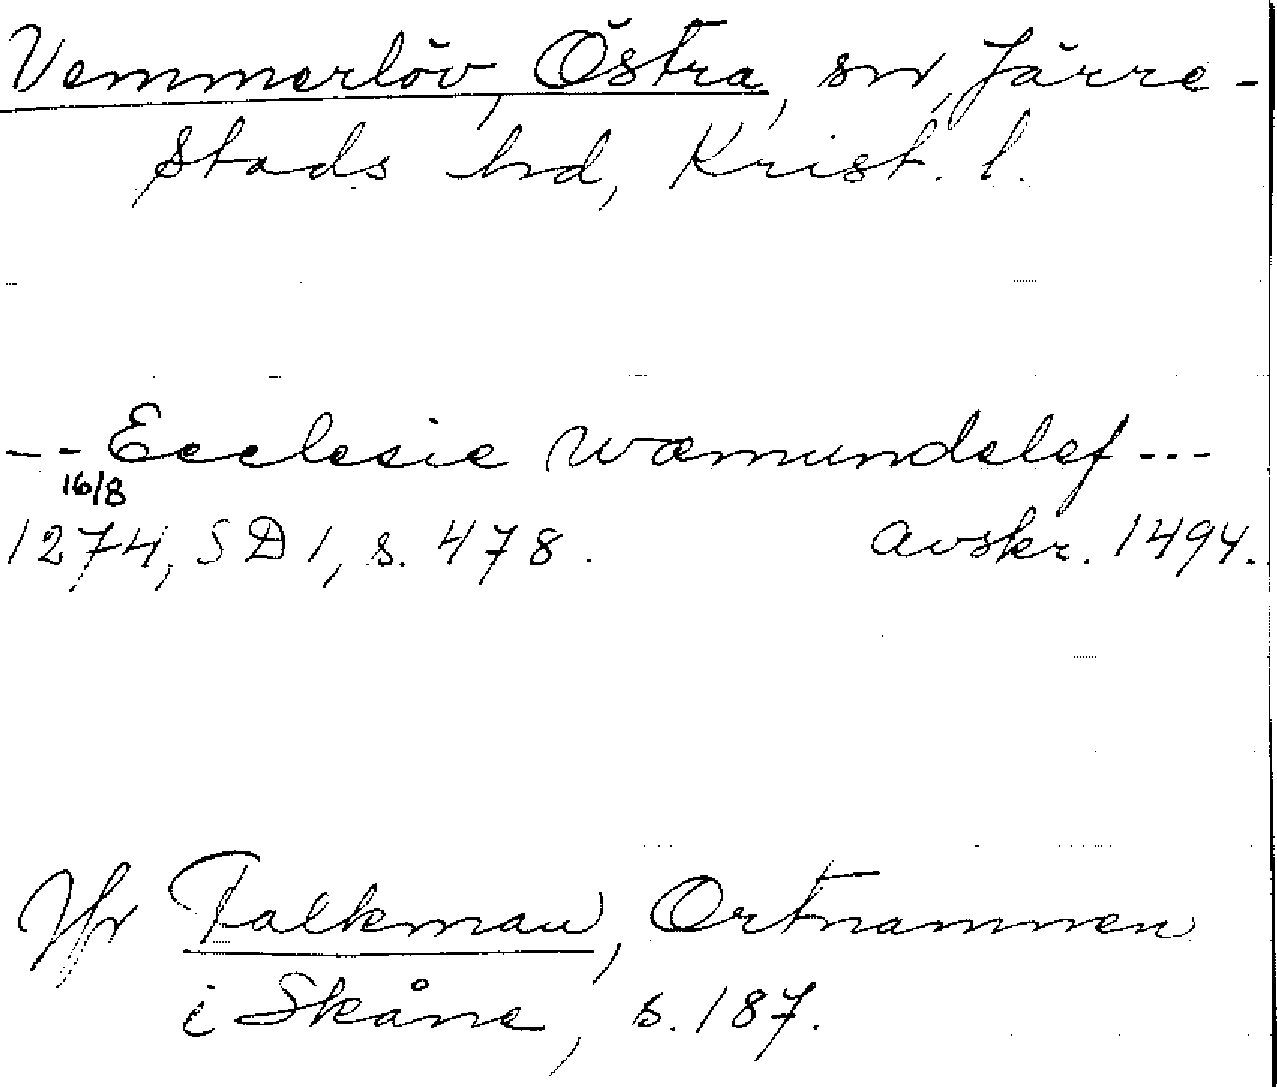 Vemmerlöv, Östra, sn, Järre-
stads hd, Krist. l.
-- Ecclesie wæmundelef ---
16/8
1274, SD 1, s. 478. avskr. 1494.
Jfr Falkman, Ortnamnen
i Skåne, s. 187.